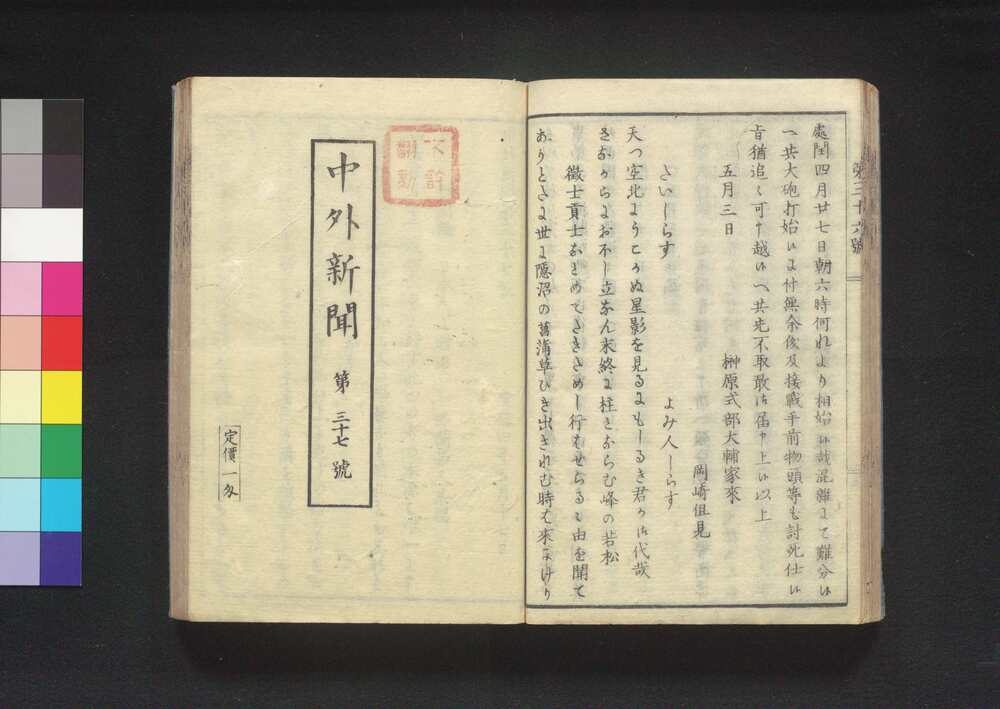 第三十六號
處閏四月廿七日朝六時何れより相始候哉混雑にて難分候
へ共大砲打始候に付無余儀及接戦手前物頭等も討死仕候
旨猶追々可申越候へ共先不取敢御届申上候以上
五月三日
榊原式部大輔家來
岡崎俎見
だいしらす
よみ人しらす
天つ空北にうこかぬ星影を見るにもしるき君か御代哉
さなからにおふし立なん末終に柱とならむ峰の若松
徴士貢士なとめてさきためし行はせらるゝ由を聞て
ありとたに世に隠沼の菖蒲草ひき出されむ時は来にけり
不許翻刻
中外新聞 第三十七號
定價一匁